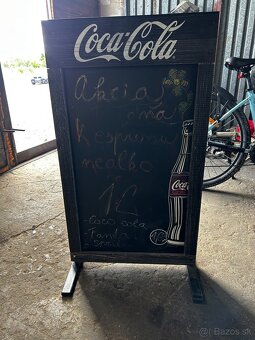 Coca-Cola
Akcia
nealko
1€
Coca-Cola
- Coca cola
- Fanta
- Sprite
© Bazos.sk